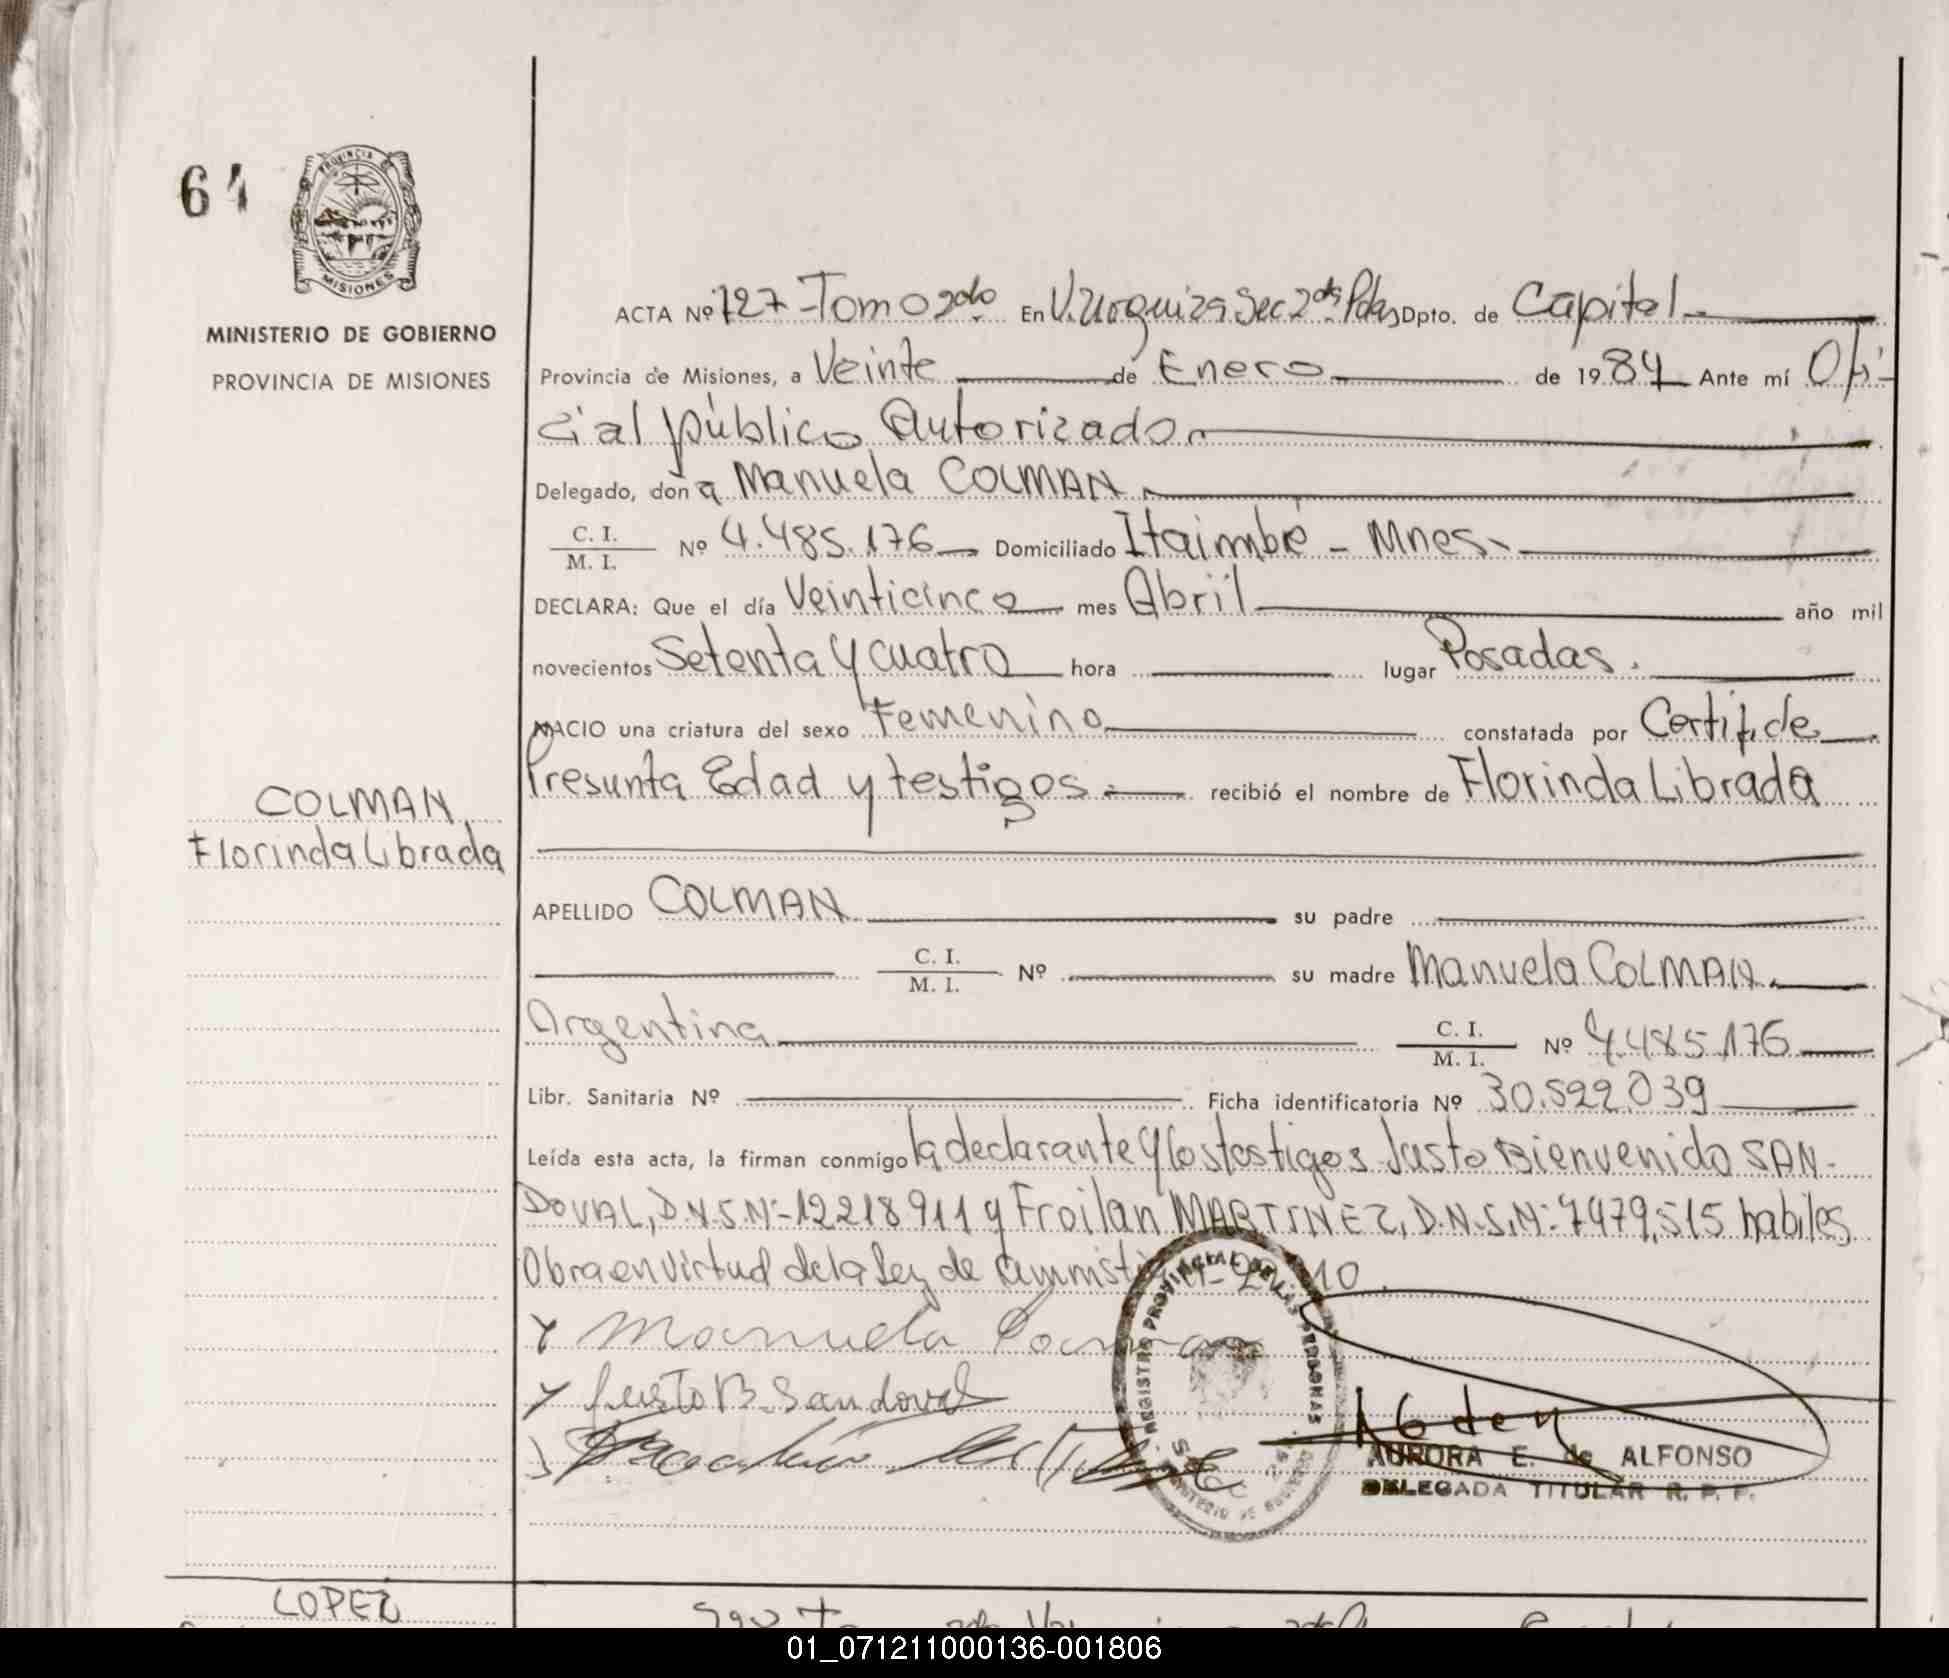 64
PROVINCIA
MISIONES
MINISTERIO DE GOBIERNO
PROVINCIA DE MISIONES
ACTA Nº 727-Tomo 2do. En V. Urquiza Sec 2da. Pdas Dpto. de Capital
Provincia de Misiones, a Veinte de Enero de 1984 Ante mí Ofi-
cial público Autorizado
Delegado, doña Manuela COLMAN
C. I.
M. I. Nº 4.485.176 Domiciliado Itaimbé - Mnes.
DECLARA: Que el día Veinticinco mes Abril año mil
novecientos Setenta y cuatro hora lugar Posadas.
NACIO una criatura del sexo Femenino constatada por Certif. de
Presunta Edad y testigos recibió el nombre de Florinda Librada
COLMAN
Florinda Librada
APELLIDO COLMAN su padre
C. I.
M. I. Nº su madre Manuela COLMAN
Argentina C. I.
M. I. Nº 4.485.176
Libr. Sanitaria Nº Ficha identificatoria Nº 30.522.039
Leída esta acta, la firman conmigo la declarante y los testigos Justo Bienvenido SAN-
DOVAL, D.N.S.Nº-12218911 y Froilan MARTINEZ, D.N.S.Nº: 7479,515 habiles
Obra en virtud de la Ley de
Manuela Colman
Justo B. Sandoval
REGISTRO PROVINCIAL DE LAS PERSONAS
MINISTERIO DE GOBIERNO
AURORA E. de ALFONSO
DELEGADA TITULAR R. P. P.
LOPEZ
01_071211000136-001806